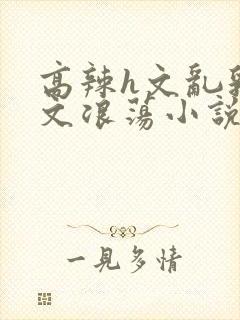 高辣h文亂
文浪蕩小說
一見多情